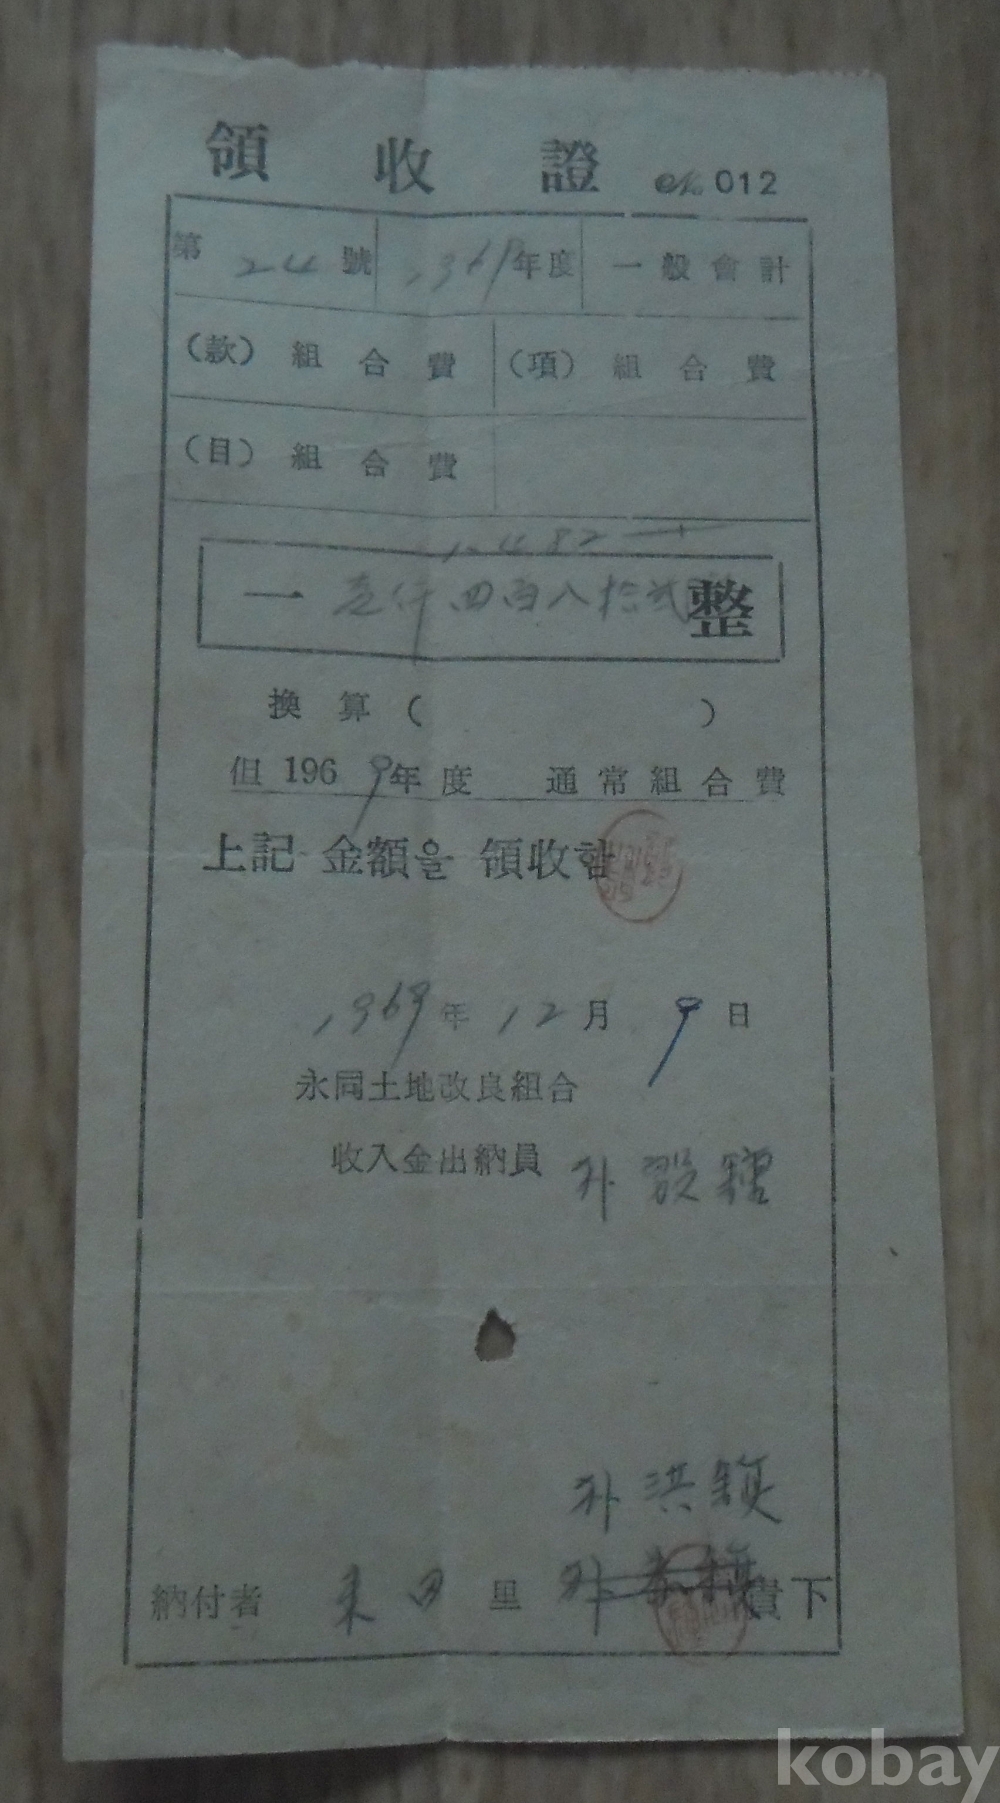 領 收 證 № 012
第 24 號 1969 年度 一般會計
(款) 組合費 (項) 組合費
(目) 組合費
1,482
一 壱仟四百八拾弐 整
換算 ( )
但 1969年度 通常組合費
上記 金額을 領收함
1969年 12月 9日
永同土地改良組合
收入金出納員 朴
朴 洪
納付者 里 朴 貴下
kobay